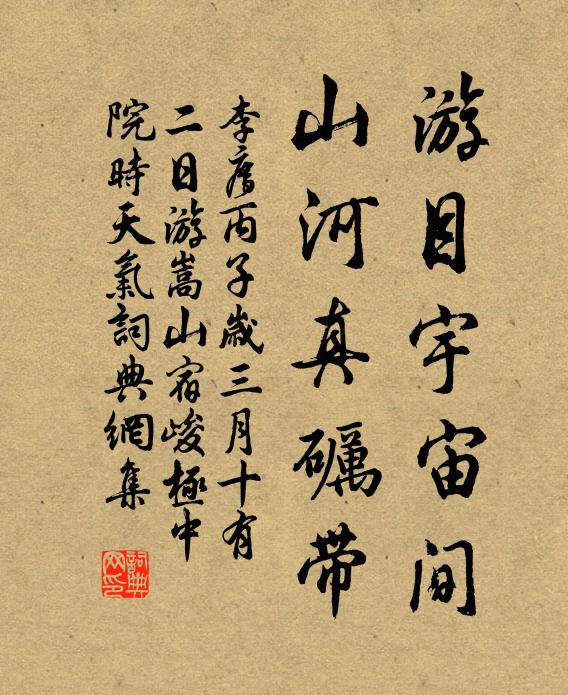 游目宇宙间
山河真礪带
李廌丙子歲三月十有
二日游嵩山宿峻極中
院時天氣詞典網集
詞典
网印